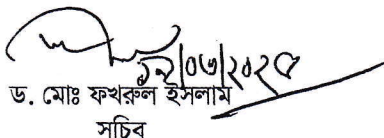 ১২/০৩/২০২৫
ড. মোঃ ফখরুল ইসলাম
সচিব